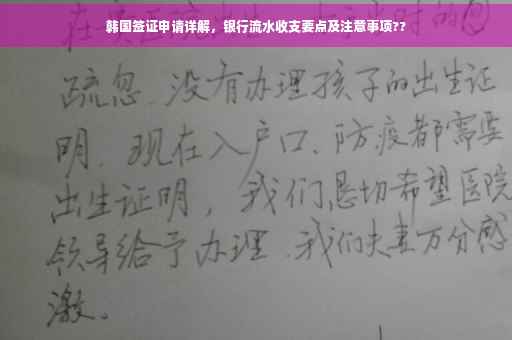 韩国签证申请详解，银行流水收支要点及注意事项??
疏忽、没有办理孩子的出生证
明、现在入户口、防疫都需要
出生证明，我们恳切希望医院
领导给予办理、我们夫妻万分感
激。